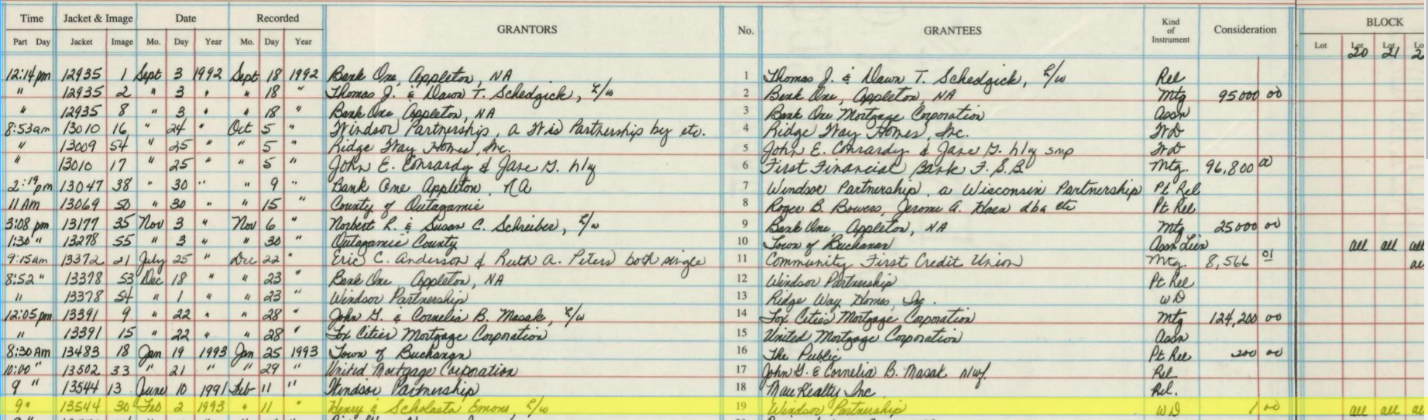 Time Jacket & Image Date Recorded GRANTORS No. GRANTEES Kind of Instrument Consideration BLOCK
Part Day Jacket Image Mo. Day Year Mo. Day Year Lot Lot 20 21
12:14pm 12935 1 Sept 3 1992 Sept 18 1992 Bank One, Appleton, NA 1 Thomas J. & Dawn T. Schedgick, Rel
" 12935 2 " 3 " " 18 " Thomas J. & Dawn T. Schedgick, 2 Bank One, Appleton, NA Mtg 95000 00
" 12935 8 " 3 " " 18 " Bank One, Appleton, NA 3 Bank One Mortgage Corporation Assn
8:53am 13010 16 " 24 " Oct 5 " Windsor Partnership, a Wis Partnership by etc. 4 Ridge Way Homes, Inc. WD
" 13009 54 " 25 " " 5 " Ridge Way Homes, Inc. 5 John E. Conrardy & Jane G. h/y smp WD
" 13010 17 " 25 " " 5 " John E. Conrardy & Jane G. h/y 6 First Financial Bank F.S.B Mtg. 96,800 00
2:19pm 13047 38 " 30 " " 9 " Bank One Appleton, NA 7 Windsor Partnership, a Wisconsin Partnership Pt Rel
11 AM 13069 50 " 30 " " 15 " County of Outagamie 8 Roger B. Bowers, Jerome A. dba etc Pt Rel
3:08 pm 13177 35 Nov 3 " Nov 6 " Norbert L. & Susan C. Schreiber, 9 Bank One, Appleton, NA Mtg 25000 00
1:30 " 13278 55 " 3 " " 30 " Outagamie County 10 Town of Buchanan Assn Lien all all all
9:15am 13372 21 July 25 " Dec 22 " Eric C. Anderson & Ruth A. Peters both single 11 Community First Credit Union Mtg. 8,566 01
8:52 " 13378 53 Dec 18 " " 23 " Bank One Appleton, NA 12 Windsor Partnership Pt Rel
" 13378 54 " 1 " " 23 " Windsor Partnership 13 Ridge Way Homes, Inc. WD
12:05pm 13391 9 " 22 " " 28 " John G. & Cornelia B. Masak, 14 Fox Cities Mortgage Corporation Mtg 124,200 00
" 13391 15 " 22 " " 28 " Fox Cities Mortgage Corporation 15 United Mortgage Corporation Assn
8:30 AM 13483 18 Jan 19 1993 Jan 25 1993 Town of Buchanan 16 The Public Pt Rel 200 00
10:00 " 13502 33 " 21 " " 29 " United Mortgage Corporation 17 John G. & Cornelia B. Masak Rel.
9 " 13544 13 June 10 1991 Feb 11 " Windsor Partnership 18 Mau Realty Inc Rel
9 " 13544 30 Feb 2 1993 " 11 " Henry & Scholasta Emons, 19 Windsor Partnership WD 1 00 all all